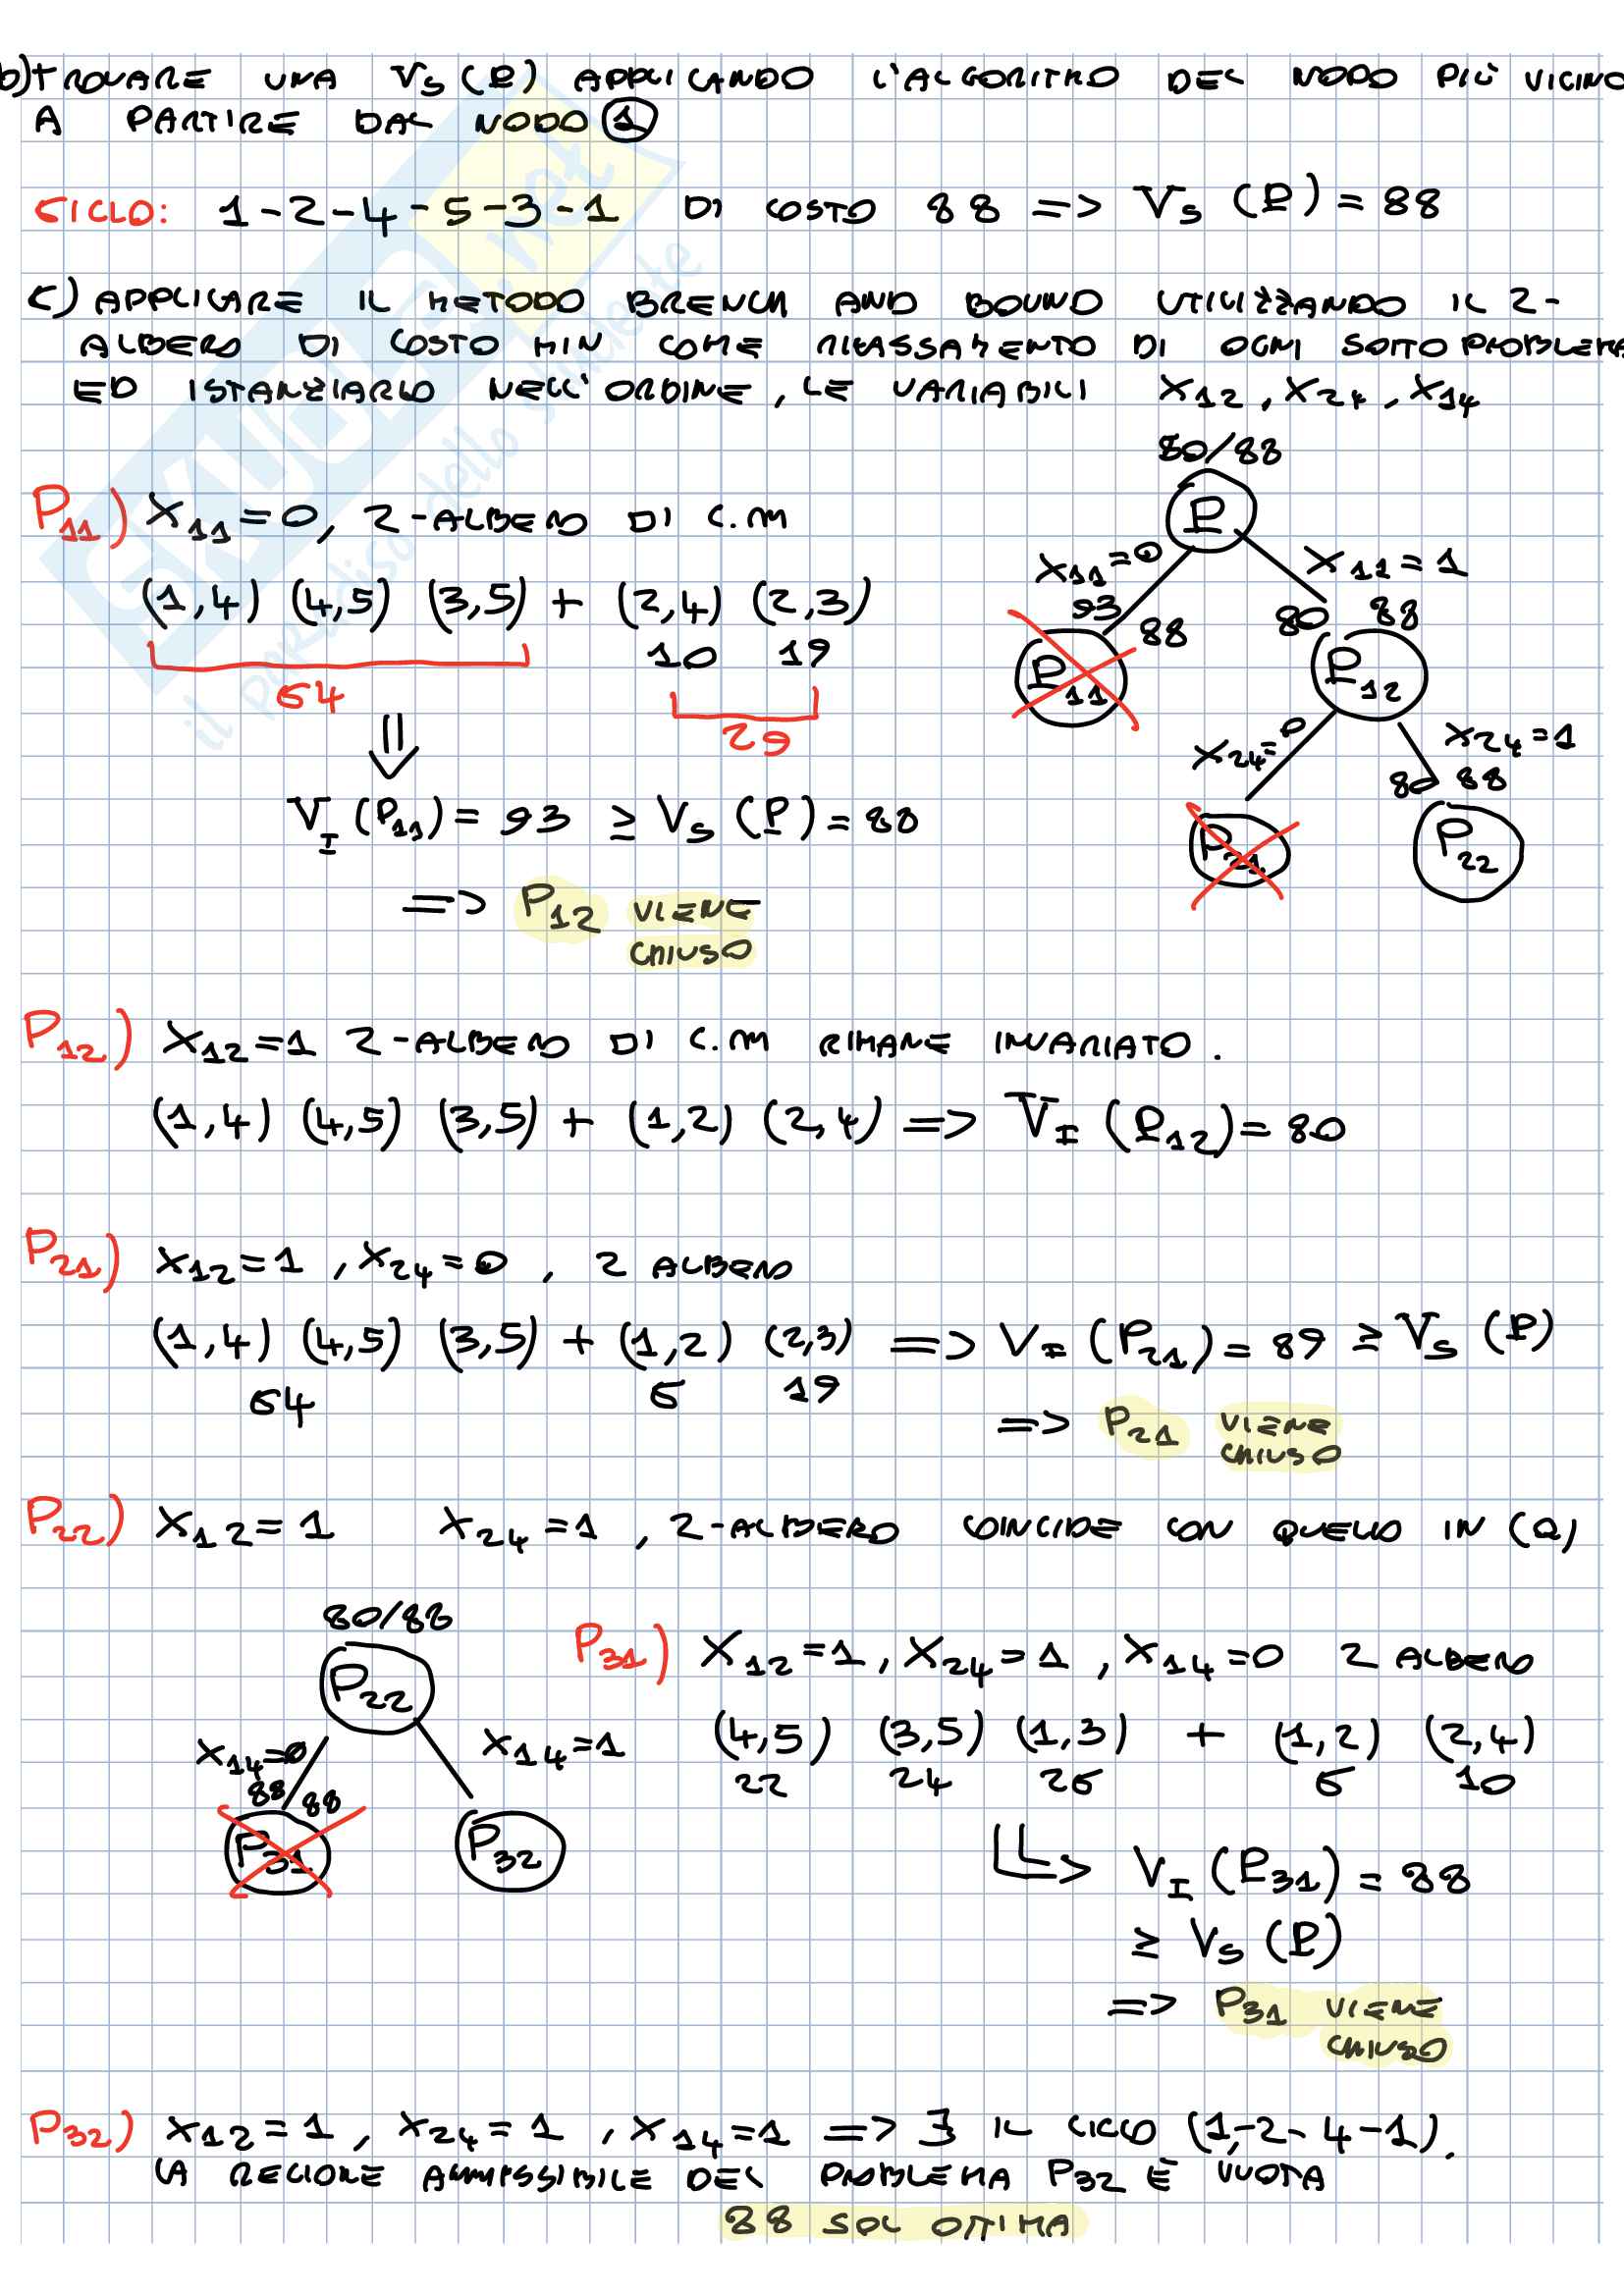 b) TROVARE UNA Vs(P) APPLICANDO L'ALGORITMO DEL NODO PIÙ VICINO
A PARTIRE DAL NODO 1
CICLO: 1-2-4-5-3-1 DI COSTO 88 => Vs (P) = 88
C) APPLICARE IL METODO BRENCH AND BOUND UTILIZZANDO IL 2-
ALBERO DI COSTO MIN COME RILASSAMENTO DI OGNI SOTTOPROBLEMA
ED ISTANZIARLO NELL'ORDINE, LE VARIABILI X12, X24, X14
80/88
P
X11=0
X11=1
93
88
80 88
P11
P12
X24=0
X24=1
80 88
P21
P22
P11) X11=0, 2-ALBERO DI C.M
(1,4) (4,5) (3,5) + (2,4) (2,3)
10 19
64
29
VI (P11) = 93 ≥ Vs (P) = 88
=> P12 VIENE
CHIUSO
P12) X12=1 2-ALBERO DI C.M RIMANE INVARIATO.
(1,4) (4,5) (3,5) + (1,2) (2,4) => VI (P12) = 80
P21) X12=1, X24=0, 2 ALBERO
(1,4) (4,5) (3,5) + (1,2) (2,3) => VI (P21) = 89 ≥ Vs (P)
64 6 19
=> P21 VIENE
CHIUSO
P22) X12=1 X24=1, 2-ALBERO COINCIDE CON QUELLO IN (a)
80/88
P22
X14=0
X14=1
88 88
P31
P32
P31) X12=1, X24=1, X14=0 2 ALBERO
(4,5) (3,5) (1,3) + (1,2) (2,4)
22 24 26 6 10
=> VI (P31) = 88
≥ Vs (P)
=> P31 VIENE
CHIUSO
P32) X12=1, X24=1, X14=1 => ∃ IL CICLO (1-2-4-1).
LA REGIONE AMMISSIBILE DEL PROBLEMA P32 È VUOTA
88 SOL OTTIMA
SKUOLA.net
il paradiso dello studente